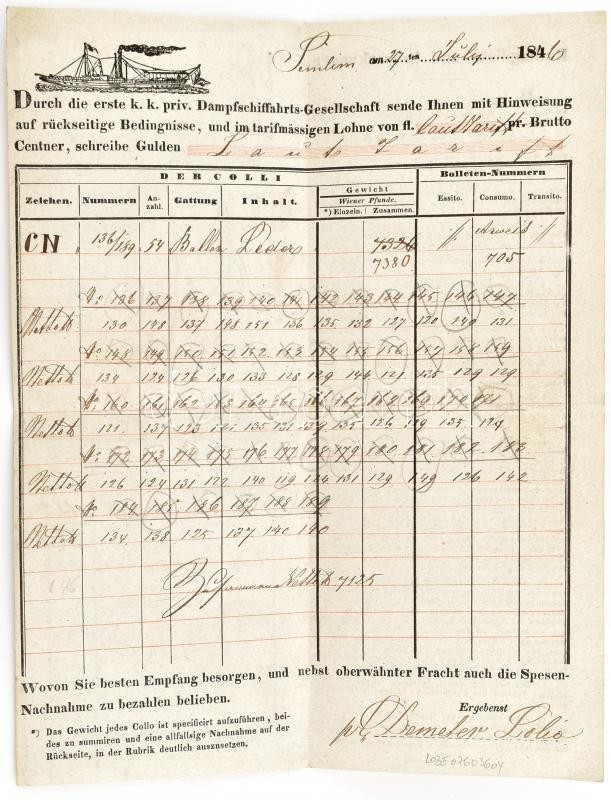 Semlin am 27 ten July 1846
Durch die erste k. k. priv. Dampfschiffahrts-Gesellschaft sende Ihnen mit Hinweisung
auf rückseitige Bedingnisse, und im tarifmässigen Lohne von fl. laut Tariff pr. Brutto
Centner, schreibe Gulden Laut Tariff
DER COLLI
Gewicht
Bolleten-Nummern
Zeichen. Nummern An-zahl. Gattung Inhalt. Wiener Pfunde. *) Einzeln. Zusammen. Essito. Consumo. Transito.
CN 136/189 54 Ballen Leder 7380 705
No 136 137 138 139 140 141 142 143 144 145 146 147
Netto 130 148 137 148 151 136 135 132 127 130 140 131
No 148 149 150 151 152 153 154 155 156 157 158 159
Netto 134 124 126 130 133 128 129 146 121 135 129 129
No 160 161 162 163 164 165 166 167 168 169 170 171
Netto 121 137 123 121 135 131 139 135 126 119 135 124
No 172 173 174 175 176 177 178 179 180 181 182 183
Netto 126 124 131 122 140 119 124 131 129 149 126 142
No 184 185 186 187 188 189
Netto 134 138 125 137 140 140
Zusammen Netto 7125
Wovon Sie besten Empfang besorgen, und nebst oberwähnter Fracht auch die Spesen-
Nachnahme zu bezahlen belieben.
*) Das Gewicht jedes Collo ist specificirt aufzuführen, bei-
des zu summiren und eine allfallsige Nachnahme auf der
Rückseite, in der Rubrik deutlich auszusetzen.
Ergebenst
pr Demeter Polio